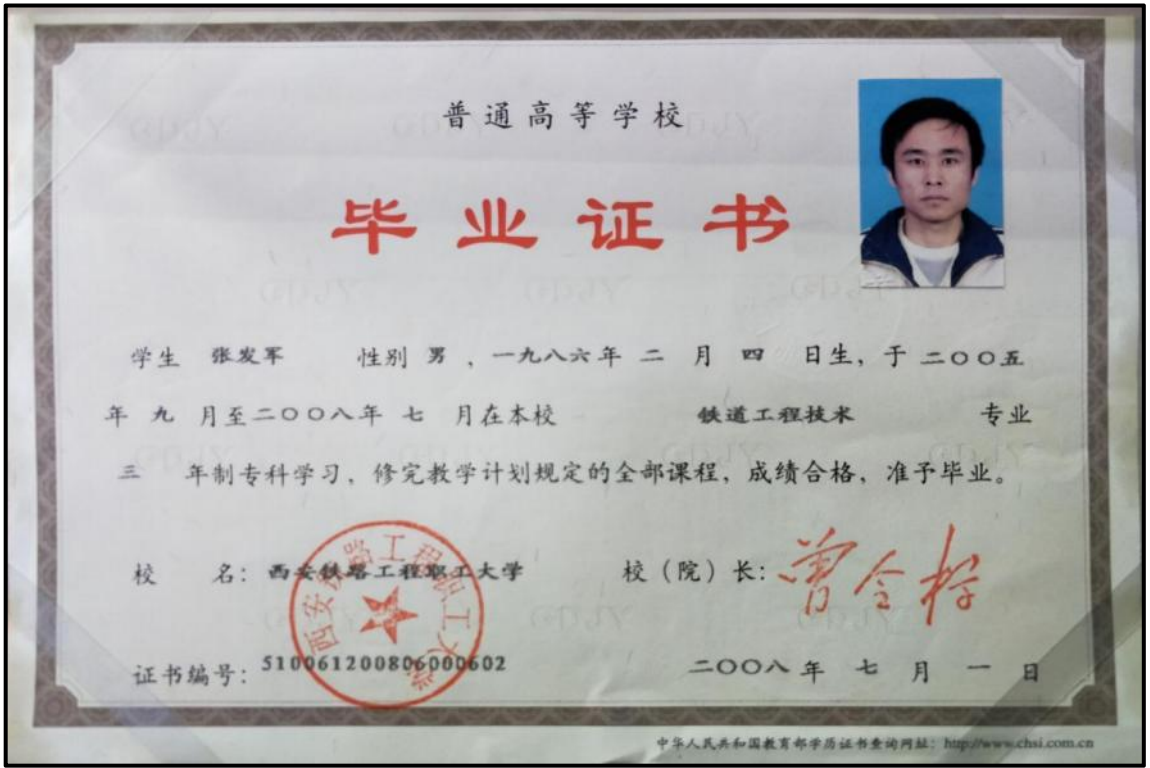 普通高等学校
毕业证书
学生 张发军 性别 男 ，一九八六年 二 月 四 日生，于 二〇〇五
年 九 月至二〇〇八年 七 月在本校 铁道工程技术 专业
三 年制专科学习，修完教学计划规定的全部课程，成绩合格，准予毕业。
校 名：西安铁路工程职工大学 校（院）长：
西安铁路工程职工大学
证书编号：510061200806000602 二〇〇八 年 七 月 一 日
中华人民共和国教育部学历证书查询网址：http://www.chsi.com.cn